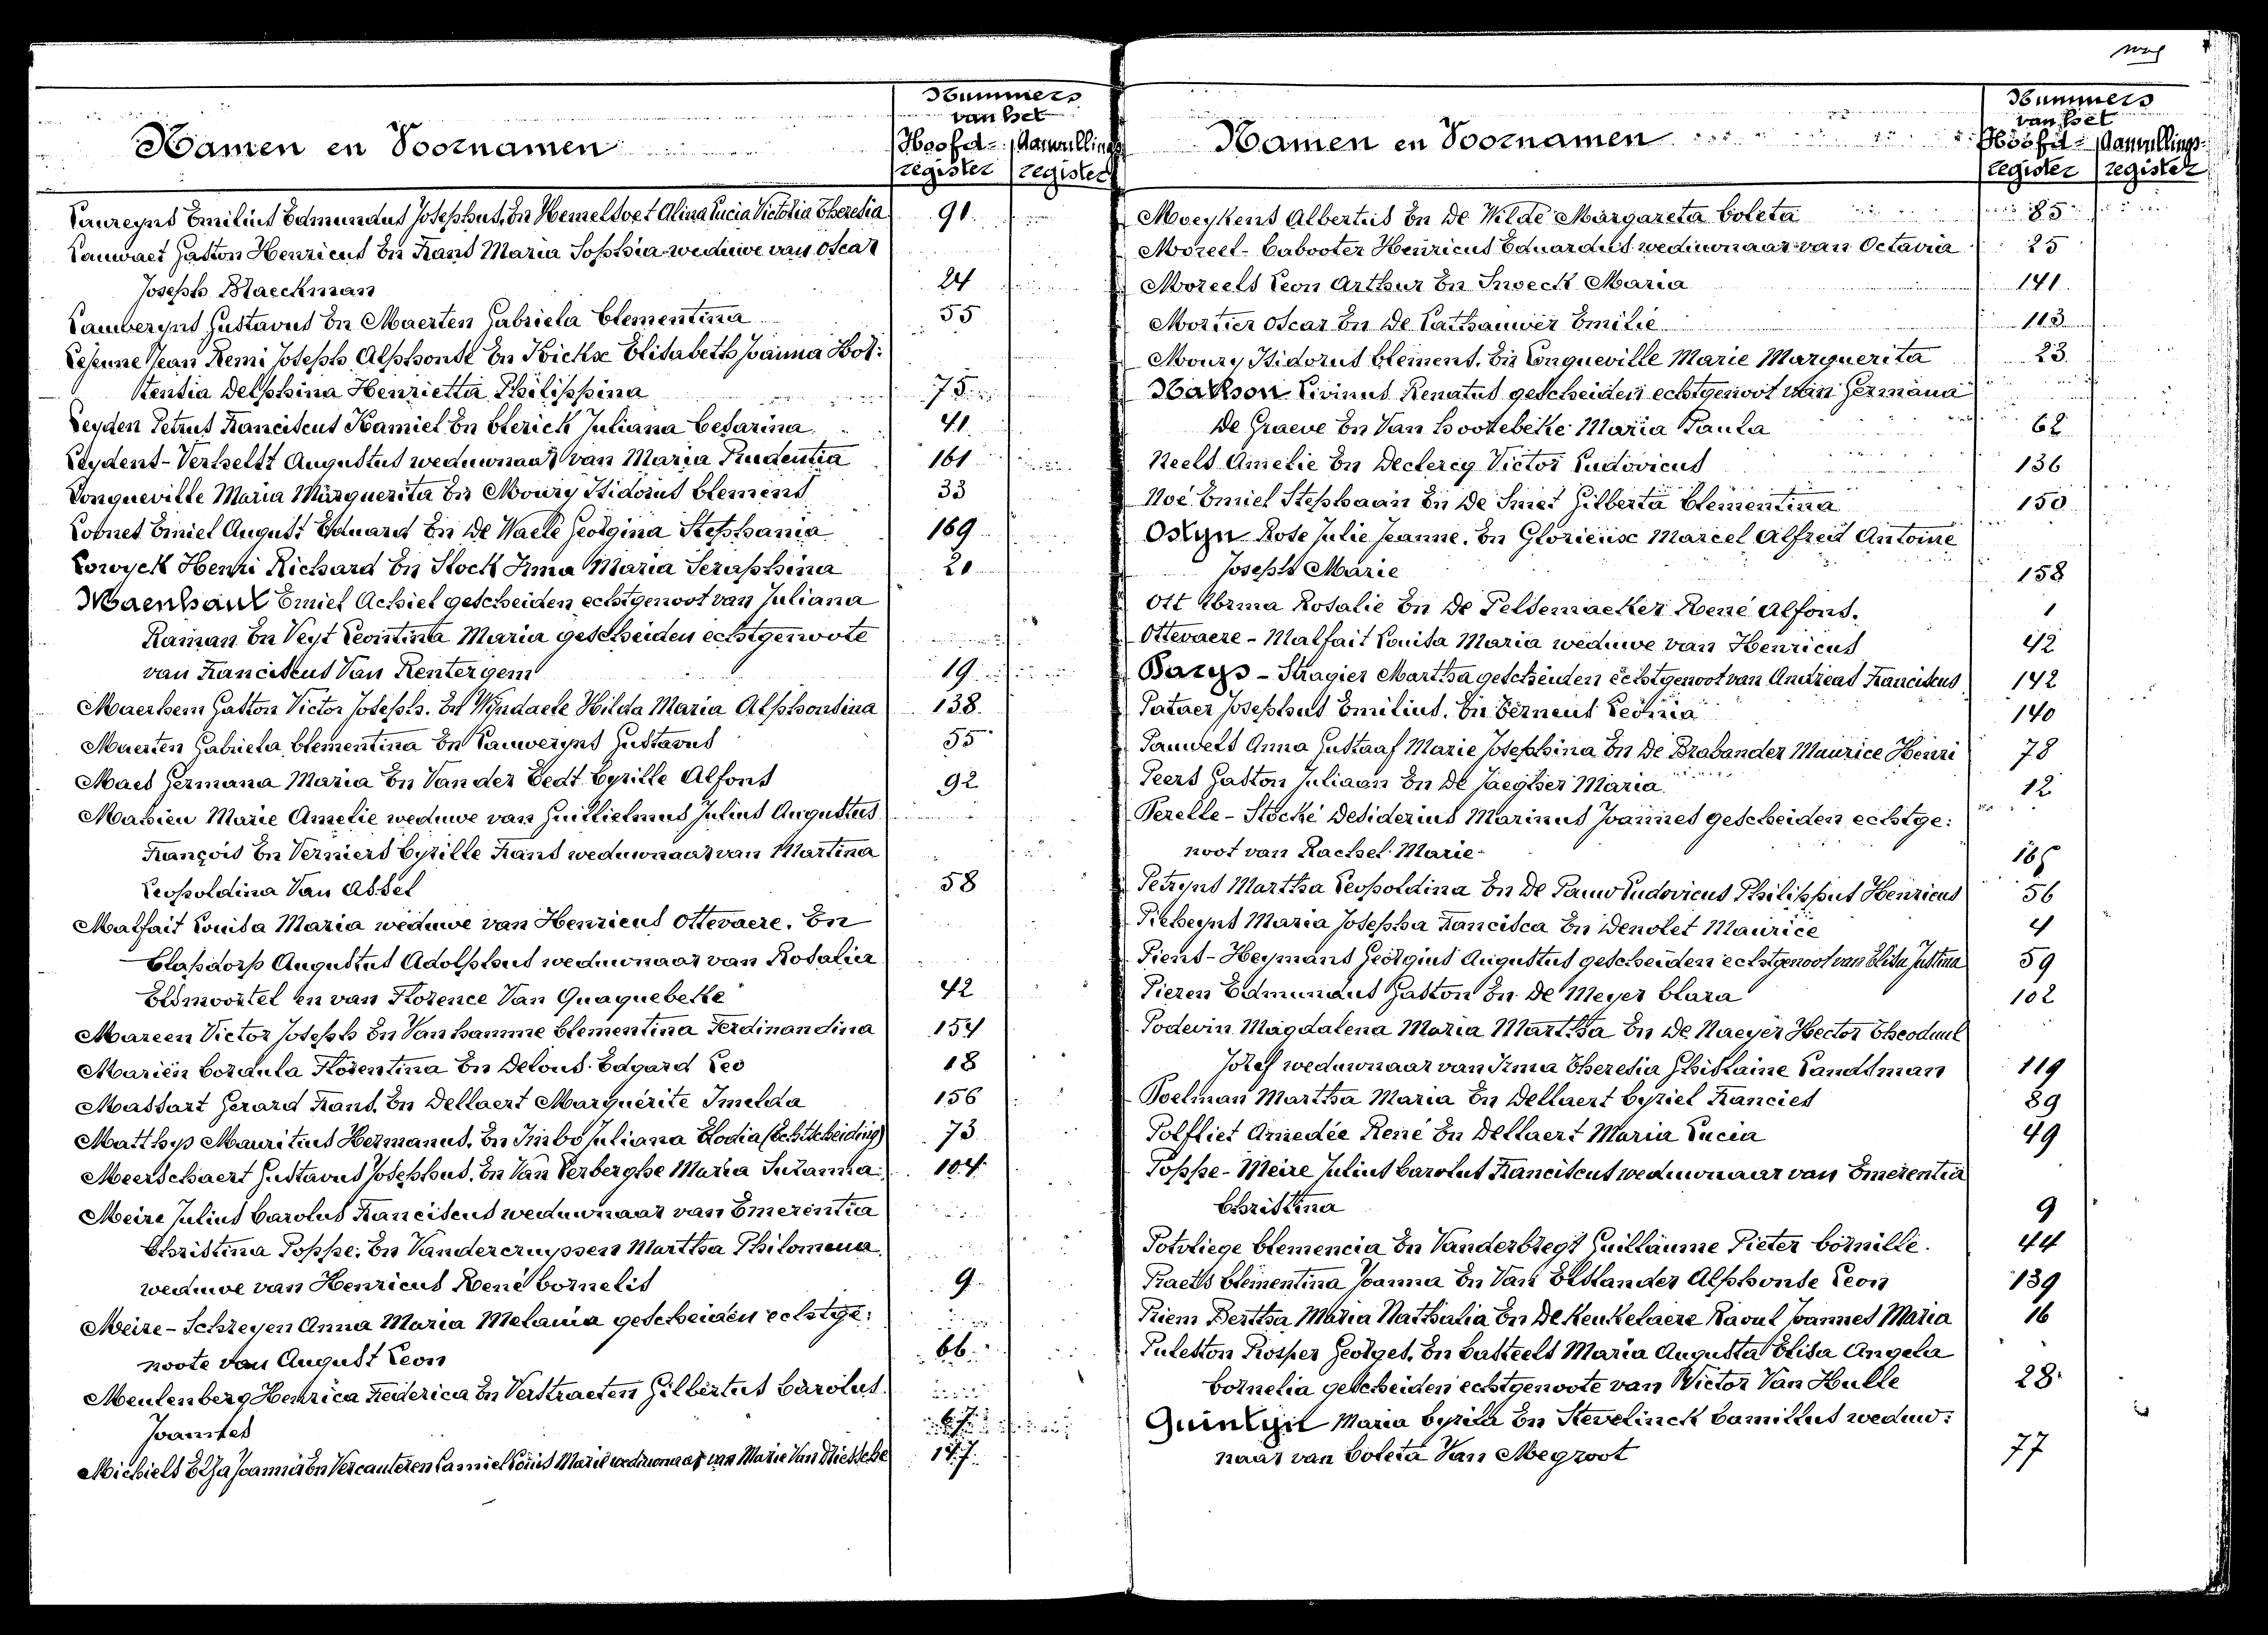 Nummers
van het
Namen en Voornamen
Hoofd- Aanvullings
register register
Laureyns Emilius Edmundus Josephus. En Hemelsoet Alina Lucia Victoria Theresia 91
Lauwaet Gaston Henricus En Frans Maria Sophia weduwe van Oscar
Joseph Blaeckman 24
Lauweryns Gustavus En Maerten Gabriela Clementina 55
Lejeune Jean Remi Joseph Alphonse En Kickx Elisabeth Joanna Hor:
tensia Delphina Henrietta Philippina 75
Leyden Petrus Franciscus Kamiel En Clerick Juliana Cesarina 41
Leydens-Verhelst Augustus weduwnaar van Maria Prudentia 161
Longueville Maria Marguerita En Moury Isidorus Clemens 33
Loones Emiel August Eduard En De Waele Georgina Stephania 169
Lowyck Henri Richard En Stock Irma Maria Seraphina 20
Maenhaut Emiel Achiel gescheiden echtgenoot van Juliana
Raman En Veyt Leontina Maria gescheiden echtgenoote
van Franciscus Van Rentergem 19
Maerhem Gaston Victor Joseph. En Wyndaele Hilda Maria Alphonsina 138
Maerten Gabriela Clementina En Lauweryns Gustavus 55
Maes Germana Maria En Van der Eedt Cyrille Alfons 92
Mahieu Marie Amelie weduwe van Guillielmus Julius Augustus
François En Verniers Cyrille Frans weduwnaar van Martina
Leopoldina Van Assel 58
Malfait Louisa Maria weduwe van Henricus Ottevaere. En
Clapdorp Augustus Adolphus weduwnaar van Rosalia
Elsmoortel en van Florence Van Quaquebeke 42
Mareen Victor Joseph En Vanhamme Clementina Ferdinandina 154
Mariën Cordula Florentina En Delous Edgard Leo 18
Massart Gerard Frans. En Dellaert Marguérite Imelda 156
Matthys Mauritius Hermanus. En Imbo Juliana Elodia (Echtscheiding) 73
Meerschaert Gustavus Josephus. En Van Verberghe Maria Suzanna 104
Meire Julius Carolus Franciscus weduwnaar van Emerentia
Christina Poppe. En Vandercruyssen Martha Philomena
weduwe van Henricus René Cornelis 9
Meire-Schreyen Anna Maria Melania gescheiden echtge:
noote van August Leon 66
Meulenberg Henrica Frederica En Verstraeten Gilbertus Carolus
Joannes 67
Michiels Elza Joanna En Vercauteren Camiel Louis Marie weduwnaar van Marie Van Driessche 147
Nummers
van het
Namen en Voornamen
Hoofd- Aanvullings-
register register
Moeykens Albertus En De Wilde Margareta Coleta 85
Moreel-Cabooter Henricus Eduardus weduwnaar van Octavia 25
Moreels Leon Arthur En Snoeck Maria 141
Mortier Oscar En De Cathauwer Emilie 113
Moury Isidorus Clement. En Longueville Marie Marguerita 23
Nachson Livinus Renatus gescheiden echtgenoot van Germana
De Graeve En Van Hootebeke Maria Paula 62
Neels Amelie En Declercq Victor Ludovicus 136
Noé Emiel Stephaan En De Smet Gilberta Clementina 150
Ostyn Rose Julie Jeanne. En Glorieuse Marcel Alfred Antoine
Joseph Marie 158
Ott Irma Rosalie En De Peldemaeker René Alfons. 1
Ottevaere-Malfait Louisa Maria weduwe van Henricus 42
Parys-Stragier Martha gescheiden echtgenoot van Andreas Franciscus 142
Pataer Josephus Emilius. En Perneus Leonia 140
Pauwels Anna Gustaaf Marie Josephina En De Brabander Maurice Henri 78
Peers Gaston Juliaan En De Jaegher Maria 12
Perelle-Stocké Desiderius Marinus Joannes gescheiden echtge:
noot van Rachel Marie 165
Petryns Martha Leopoldina En De Pauw Ludovicus Philippus Henricus 56
Pieheyns Maria Josepha Francisca En Denolet Maurice 4
Piens-Heymans Georgius Augustus gescheiden echtgenoot van Elisa Justina 59
Pieren Edmundus Gaston En De Meyer Clara 102
Podevin Magdalena Maria Martha En De Naeyer Hector Theoduul
Jozef weduwnaar van Irma Theresia Ghislaine Landsman 119
Poelman Martha Maria En Dellaert Cyriel Francies 89
Polfliet Amedée René En Dellaert Maria Lucia 49
Poppe-Meire Julius Carolus Franciscus weduwnaar van Emerentia
Christina 9
Potvliege Clemencia En Vanderstegt Guillaume Pieter Cornille. 44
Praets Clementina Joanna En Van Elslander Alphonse Leon 139
Priem Bertha Maria Nathalia En De Keukelaere Raoul Joannes Maria 16
Puleston Prosper Georges. En Casteels Maria Augusta Elisa Angela
Cornelia gescheiden echtgenoote van Victor Van Hulle 28
Quintyn Maria Cyrilla En Stevelinck Camillus weduw:
naar van Coleta Van Megroot 77